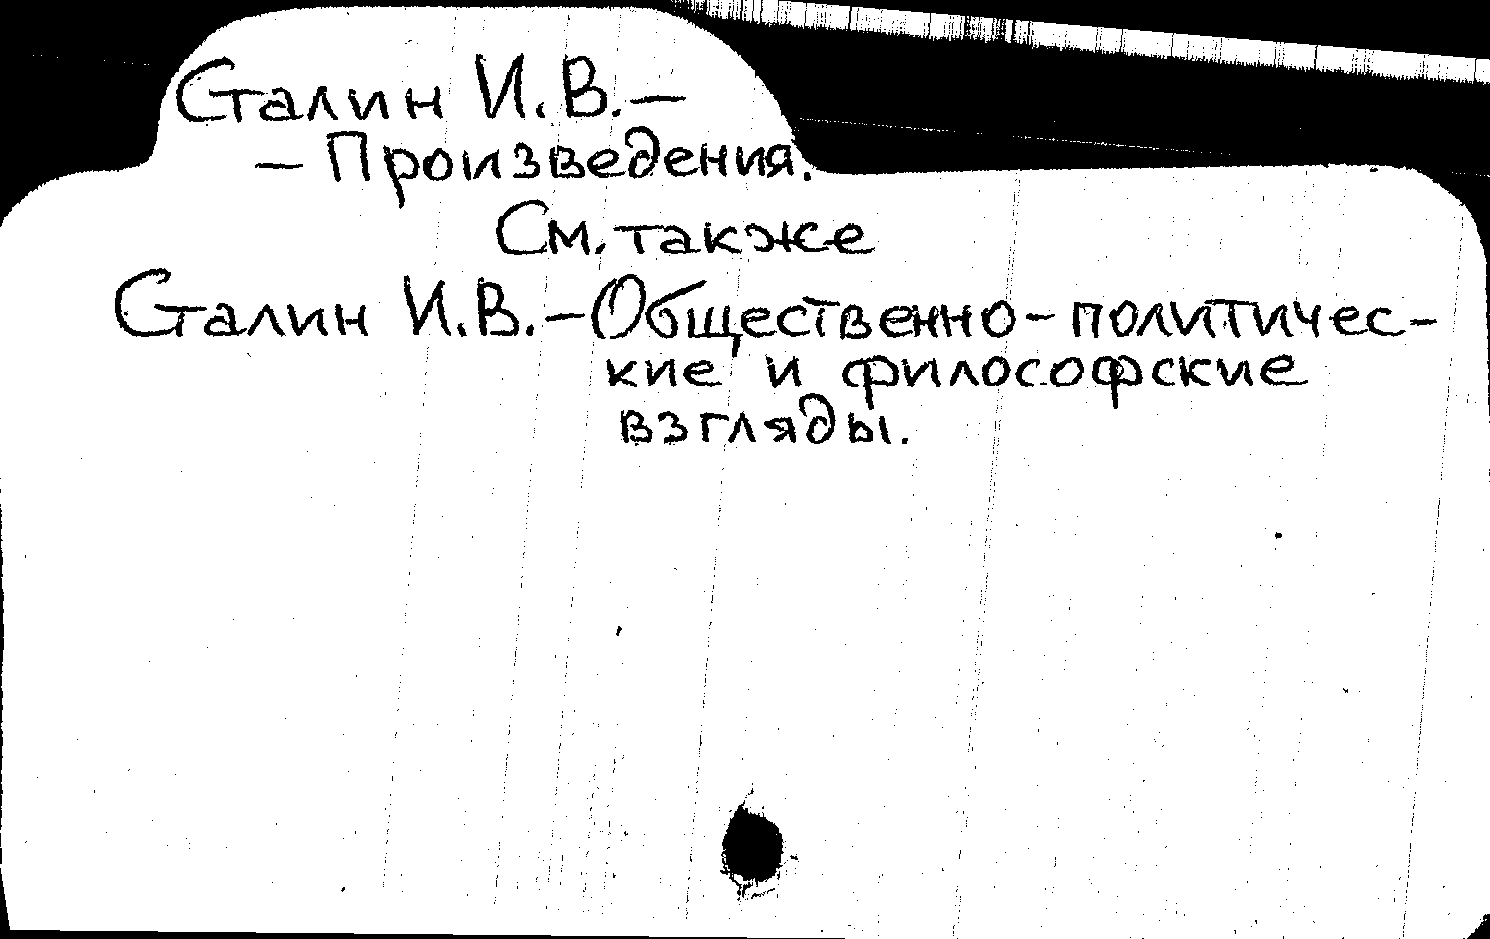 Сталин И.В.—
— Произведения.
См. также
Сталин И.В.—Общественно-политичес-
кие и философские
взгляды.